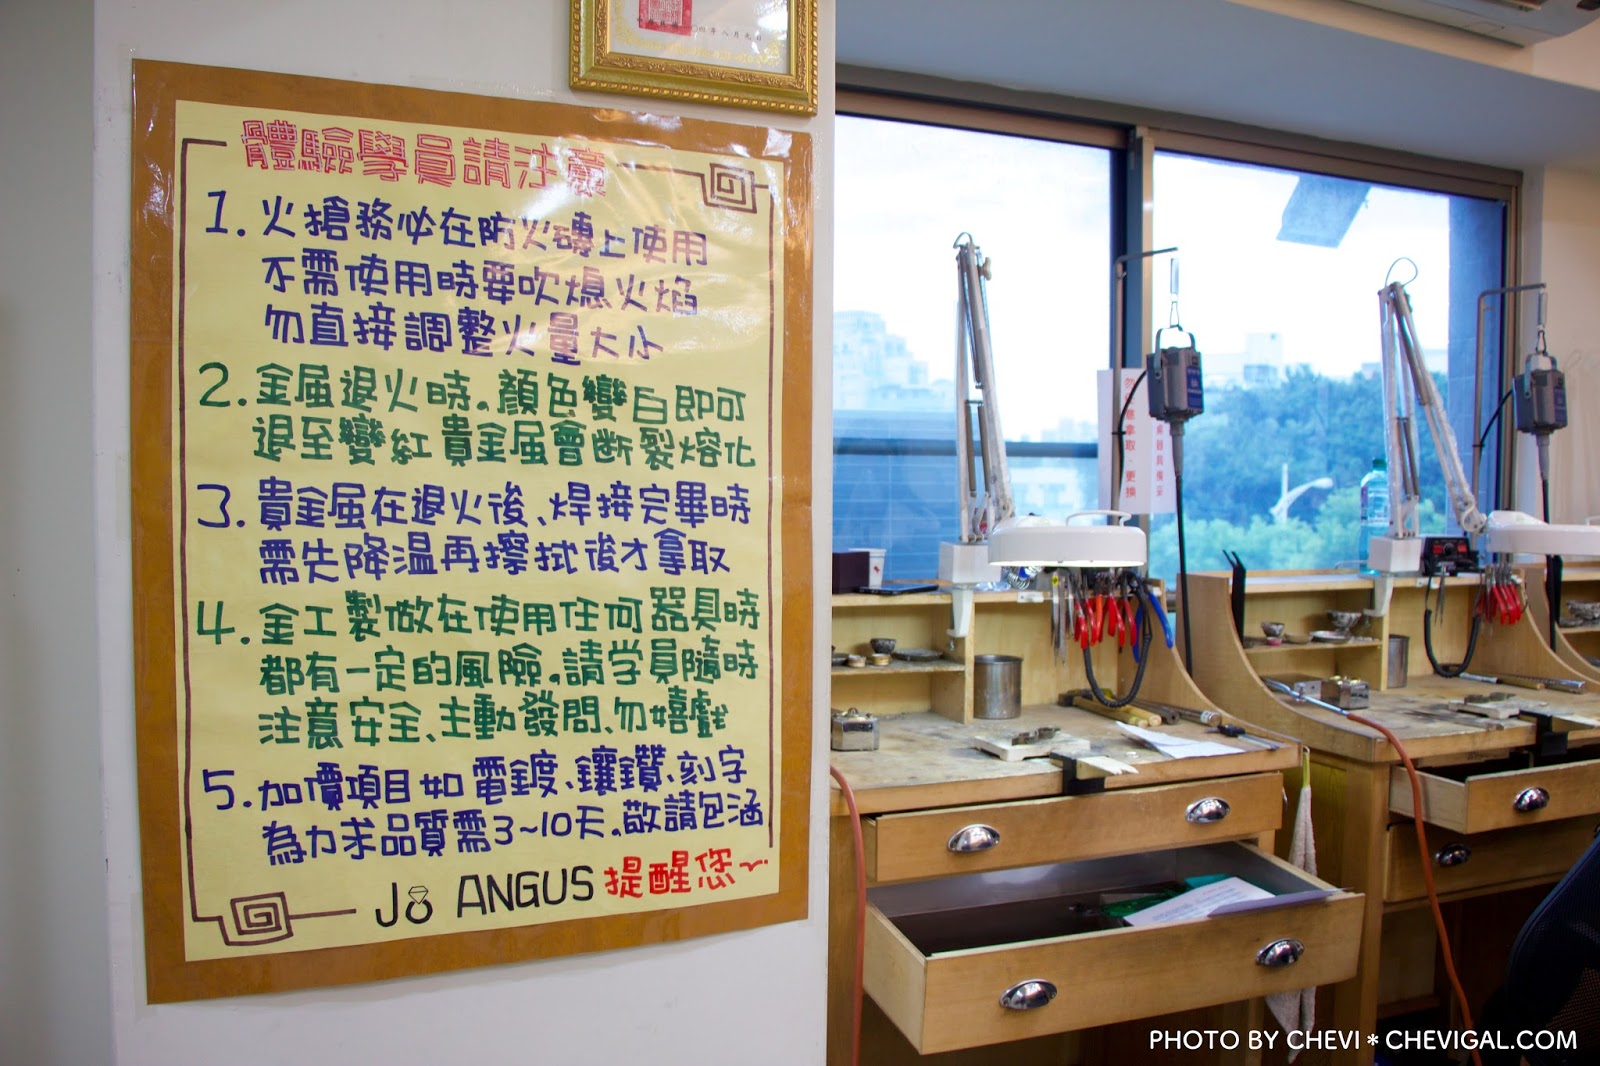 〇四年八月九日
體驗學員請注意
1. 火搶務必在防火磚上使用
不需使用時要吹熄火焰
勿直接調整火量大小
2. 金屬退火時。顏色變白即可
退至變紅貴金屬會斷裂熔化
3. 貴金屬在退火後、焊接完畢時
需先降温再擦拭後才拿取
4. 金工製做在使用任何器具時
都有一定的風險。請学員隨時
注意安全、主動發問、勿嬉戲
5. 加價項目如電鍍、鑲鑽、刻字
為力求品質需3~10天。敬請包涵
JO ANGUS 提醒您~
拿取、更換
PHOTO BY CHEVI * CHEVIGAL.COM